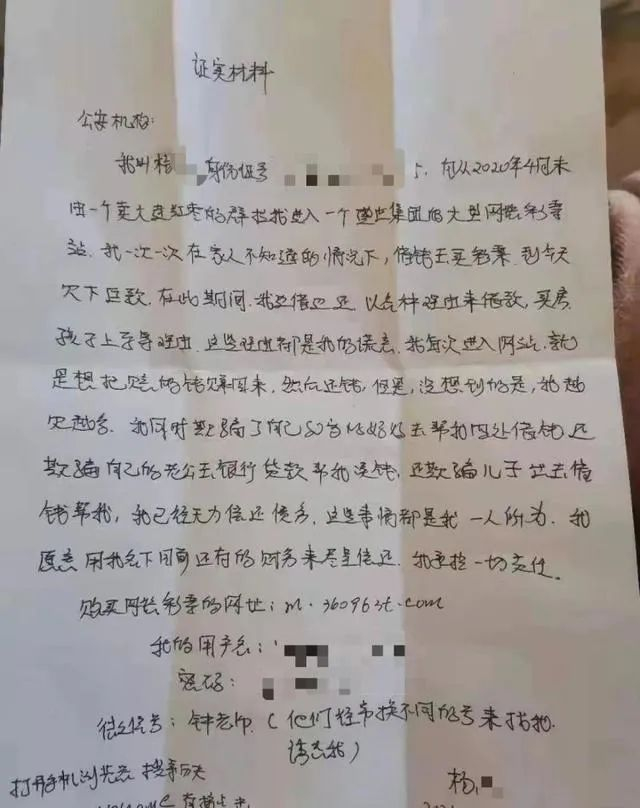 证实材料
公安机构:
我叫杨 身份证号 5. 自从2020年4月末
由一个卖大连红枣的群拉我进入一个 集团的大型网络彩票
站. 我一次一次在家人不知道的情况下, 借钱去买彩票. 到今天
欠下巨款. 在此期间. 我边借边还. 以各种理由来借款, 买房.
孩子上学等理由. 这些理由都是我的谎言. 我每次进入网站. 就
是想把 的钱赚回来. 然后还钱. 但是, 没想到的是, 我越
欠越多. 我同时欺骗了自己80岁的妈妈去帮我四处借钱. 还
欺骗自己的老公去银行贷款帮我还钱, 还欺骗儿子出去借
钱帮我, 我已经无力偿还债务. 这些事情都是我一人所为. 我
愿意用我名下目前还有的财务来尽量偿还. 我承担一切责任.
购买网络彩票的网址: m.360963t.com
我的用户名:
密码:
微信号: 钟老师. (他们经常换不同的号来找我.
)
打开手机浏览器 搜索历史
杨